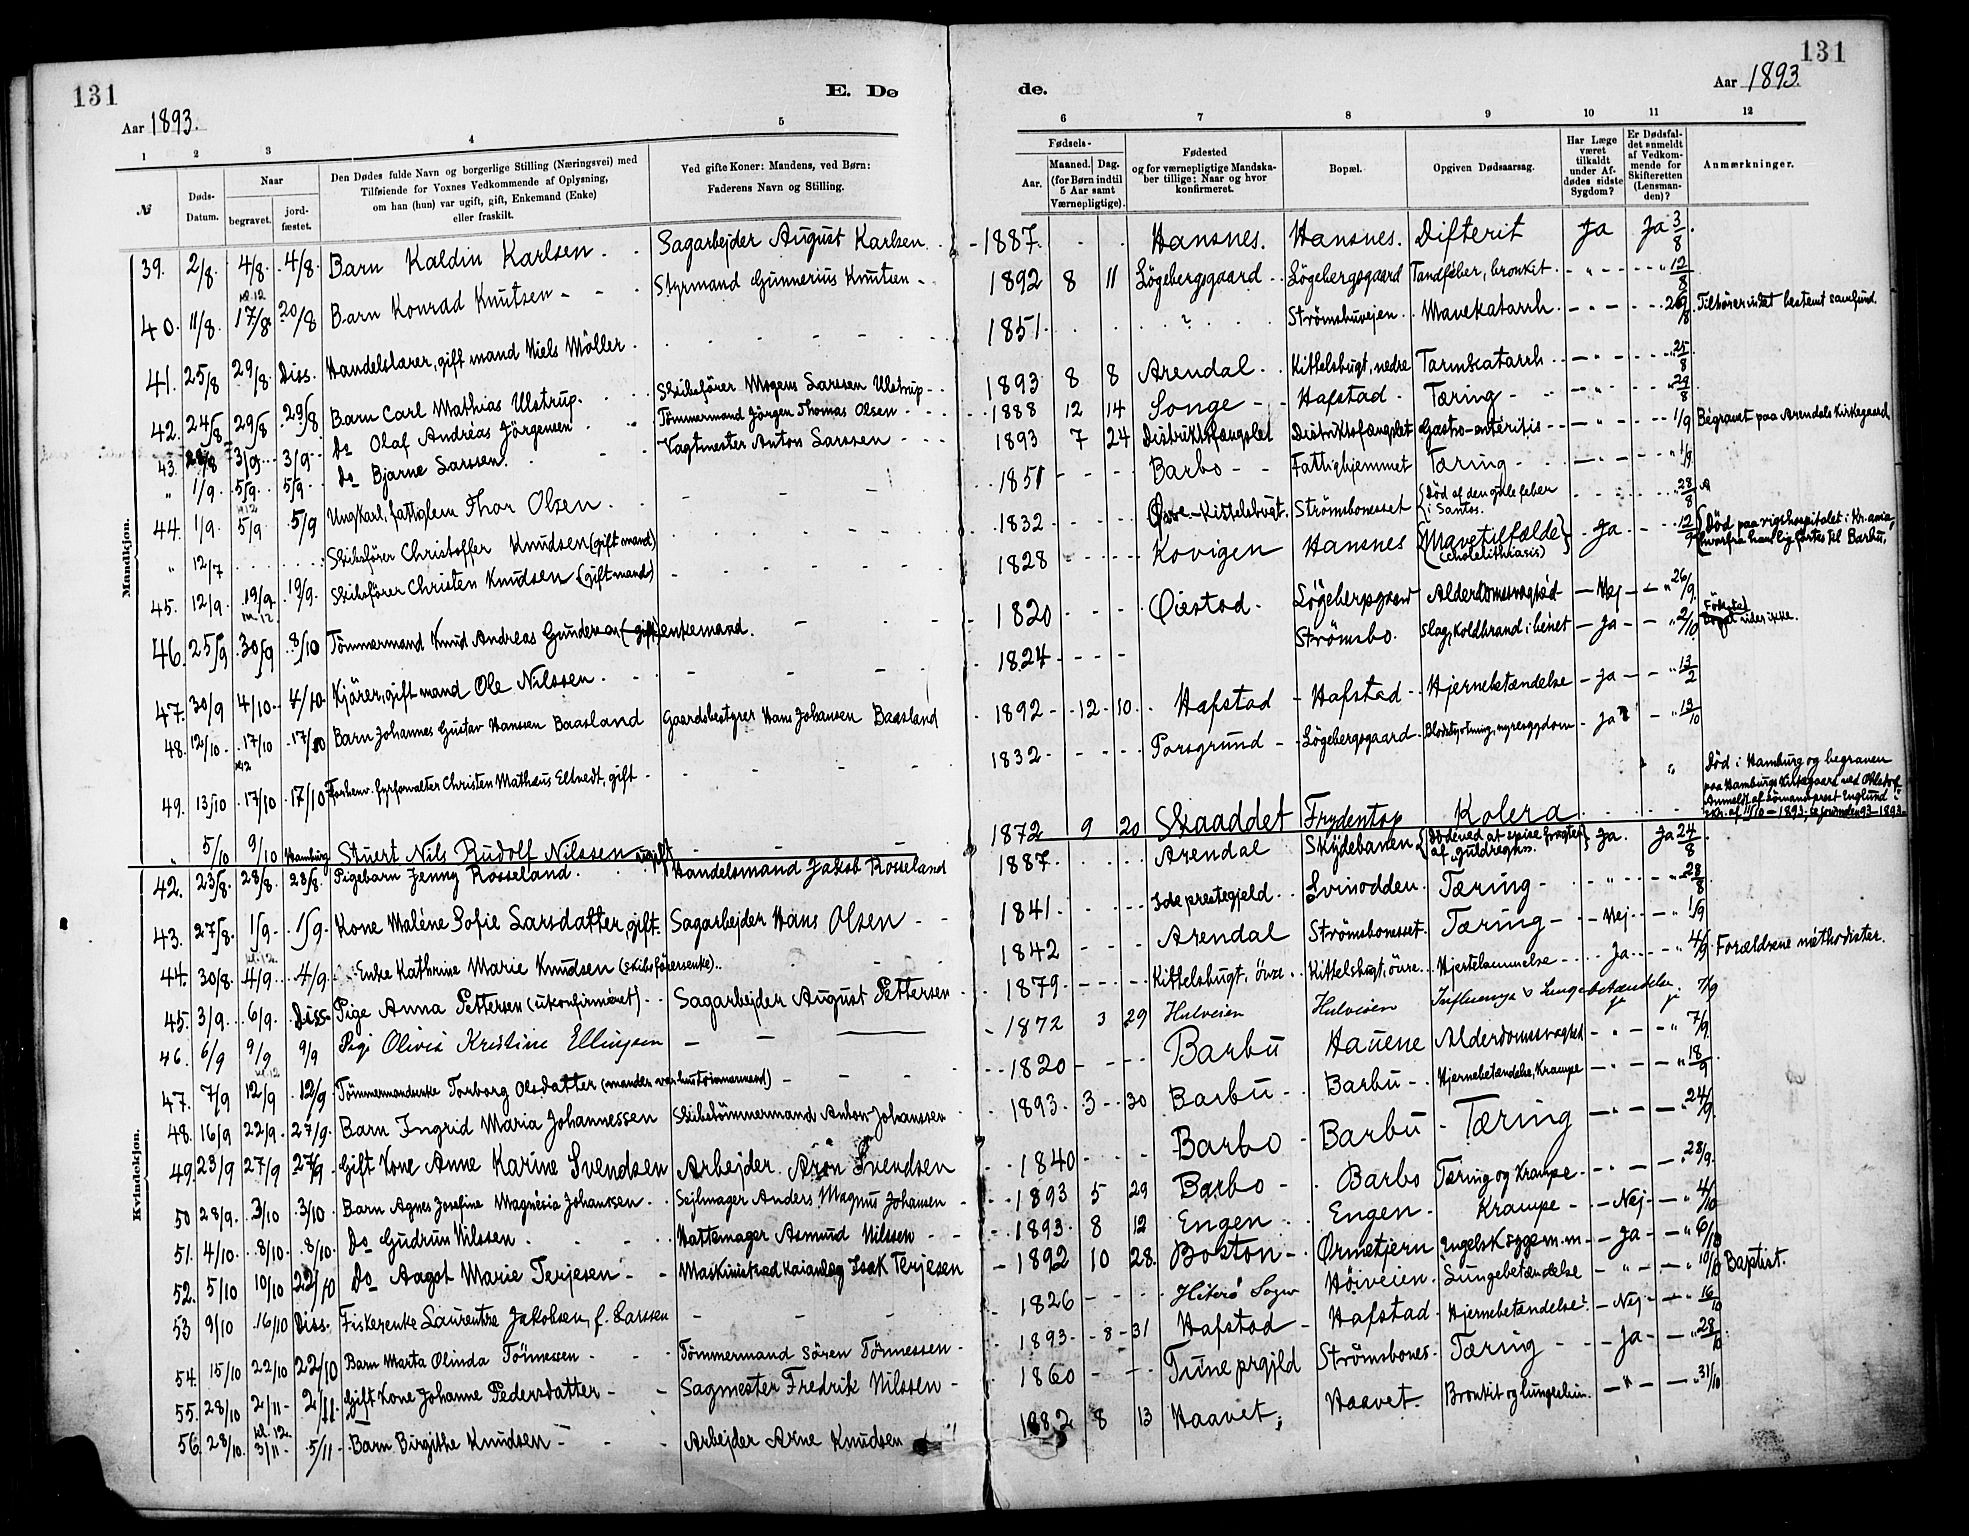 131
E. Dø
Aar 1893.
1 2 3 4 5
№
Døds-Datum.
Naar
begravet.
jord-fæstet.
Den Dødes fulde Navn og borgerlige Stilling (Næringsvei) med
Tilføiende for Voxnes Vedkommende af Oplysning,
om han (hun) var ugift, gift, Enkemand (Enke)
eller fraskilt.
Ved gifte Koner: Mandens, ved Børn:
Faderens Navn og Stilling.
Mandkjøn.
39. 2/8. 4/8. 4/8. Barn Kaldin Karlsen Sagarbejder August Karlsen
kl. 12
40. 11/8. 17/8. 20/8 Barn Konrad Knutsen Styrmand Gunnerius Knutsen
41. 25/8 29/8. Diss. Handelslærer, gift mand Niels Möller
42. 24/8 29/8 29/8 Barn Carl Mathias Ulstrup. Skibsfører Mogens Larssen Ulstrup
43. 3/9 3/9 Do Olaf Andréas Jörgensen Tömmermand Jörgen Thomas Olsen
" 1/9. 5/9. 5/9. Do Bjarne Larssen. Vagtmester Anton Larssen
kl 12
44. 1/9. 5/9. 5/9 Ungkarl, fattiglem Thor Olsen
" 12/7 Skibsfører Christoffer Knudsen (gift mand)
45. 12/9. 19/9. 19/9. Skibsfører Christen Knudsen (gift mand)
kl. 12.
46. 25/9 30/9 8/10 Tömmermand Knud Andreas Gundersen (gift) enkemand.
47. 30/9 4/10 4/10 Kjörer, gift mand Ole Nilssen
48. 12/10 17/10 17/10 Barn Johannes Gustav Hanssen Baasland Gaardsbestyrer Hans Johansen Baasland
kl 12
49. 13/10 17/10 17/10 Forhenv. fyrforvalter Christen Mathæus Eltvedt, gift
" 5/10 9/10 Hamburg Stuert Nils Rudolf Nilssen ugift
Kvindekjøn.
42. 23/8. 28/8. 28/8. Pigebarn Jenny Rosseland. Handelsmand Jakob Rosseland
43. 27/8. 1/9. 1/9. Kone Maléne Sofie Larsdatter, gift. Sagarbejder Hans Olsen
kl. 12.
44. 30/8. 4/9. 4/9. Enke Kathrine Marie Knudsen (skibsførersenke)
45. 3/9. 6/9. Diss. Pige Anna Pettersen (ukonfirmeret) Sagarbejder August Pettersen
46. 6/9 9/9 9/9 Pige Olivia Kristine Ellingsen
kl. 12
47. 7/9 12/9 12/9 Tömmermandsenke Torborg Olsdatter (manden var hustömmermand)
48. 16/9 22/9. 27/9. Barn Ingrid Maria Johannessen Skibstömmermand Anton Johanssen
49. 23/9 27/9 27/9 Gift Kone Anne Karine Svendsen Arbejder Aron Svendsen
50 28/9. 3/10 3/10 Barn Agnes Josefine Magnésia Johanssen Sejlmager Anders Magnus Johansen
51. 4/10. 8/10. 8/10. Do Gudrun Nilssen Hattemager Asmund Nilssen
52. 5/10 10/10 22/10 Do Aagot Marie Terjesen Isak Terjesen
53 9/10 16/10 Diss. Fiskerenke Laurentze Jakobsen, f. Larssen
54. 15/10 22/10 22/10 Barn Marta Olinda Tönnessen Tömmermand Sören Tönnessen
55. 28/10 2/11 2/11 Gift Kone Johanne Pedersdatter Sagmester Fredrik Nilssen
kl. 12
56. 28/10. 3/11 5/11 Barn Birgithe Knudsen Arbejder Arne Knudsen
131
de.
Aar 1893.
6 7 8 9 10 11 12
Fødsels-
Aar.
Maaned. Dag.
(for Børn indtil
5 Aar samt
Værnepligtige).
Fødested
og for værnepligtige Mandska-
ber tillige: Naar og hvor
konfirmeret.
Bopæl.
Opgiven Dødsaarsag.
Har Læge
været
tilkaldt
under Af-
dødes sidste
Sygdom?
Er Dødsfal-
det anmeldt
af Vedkom-
mende for
Skifteretten
(Lensman-
den)?
Anmærkninger.
1887. Hansnes. Hansnes. Difterit Ja Ja 3/8.
1892 8 11 Lögebergsgaard Lögebergsgaard Tandfeber, bronkit. " " 12/8
1851. ? Strömsbuvejen. Mavekatarrh " 26/8 Tilhörer intet bestemt samfund.
1893 8 8 Arendal Kittelsbugt, nedre Tarmkatarrh " " 25/8
1888 12 14 Songe Hafstad Tæring " " 29/8
1893 7 24 Distriktsfængslet Distriktsfængslet Gastro-enteritis " 1/9 Begravet paa Arendals Kirkegaard
1851 Barbo Fattighjemmet Tæring " 1/9
1832 Øvre-Kittelsbugt. Strömsbonesset {Död af den gule feber i Santos. " 28/8
1828 Kovigen Hansnes {Mavetilfælde (cholelithiasis)} Ja 12/9 {Död paa rigshospitalet i Kr.ania, hvorfra hans lig førtes til Barbu,
1820 Öiestad. Lögebergsgaard Alderdomssvaghed Nej " 26/9.
1824 Strömsbo. Slag, koldbrand i benet Ja " 2/10 Fødested vides ikke.
1892 12 10 Hafstad Hafstad Hjernebetændelse Ja " 13/2
1832 Porsgrund Lögebergsgaard Blodstyrtning, nyresygdom Ja 13/10
1872 9 20 Skaaddet Frydentop Kolera " Död i Hamburg og begraven paa Hamburgs Kirkegaard ved Ohlsdorf. Anmeldt af sömandsprest Englund i skr. af 11/10-1893.
1887. Arendal Skydebanen {Döde ved at spise frugter af guldregn.} Ja. Ja 24/8
1841. Ide prestegjeld Svinodden. Tæring " " 28/8
1842 Arendal Strömsbonesset Tæring Nej " 1/9
1879 Kittelsbugt, övre Kittelsbugt, övre Hjertelammelse Ja " 4/9 Forældrene methodister.
1872 3 29 Hulveien Hulveien Influenza & Lungebetændelse. ja ja 7/9
1820 Barbu Hauene Alderdomssvaghed " " 7/9.
1893 3 30 Barbu Barbu Hjernebetændelse, Krampe " " 18/9
1840 Barbo Barbu Tæring " " 24/9.
1893 5 29 Barbo Barbo Tæring og Krampe " " 28/9.
1893 8 12 Engen Engen Krampe Nej " 4/10
1892 10 28. Boston Ørmetjern Engelsk sygem.m. Ja " 6/10
1826 Hiterö Sogn Höiveien. Lungebetændelse " " 10/10 Baptist.
1893 8 31 Hafstad Hafstad Hjernebetændelse? Nej " 16/10
1860 Tune prgjld Strömsbones Tæring Ja " 28/10
1882 8 13 Haavet; Haavet. Bronkit og " " 31/10